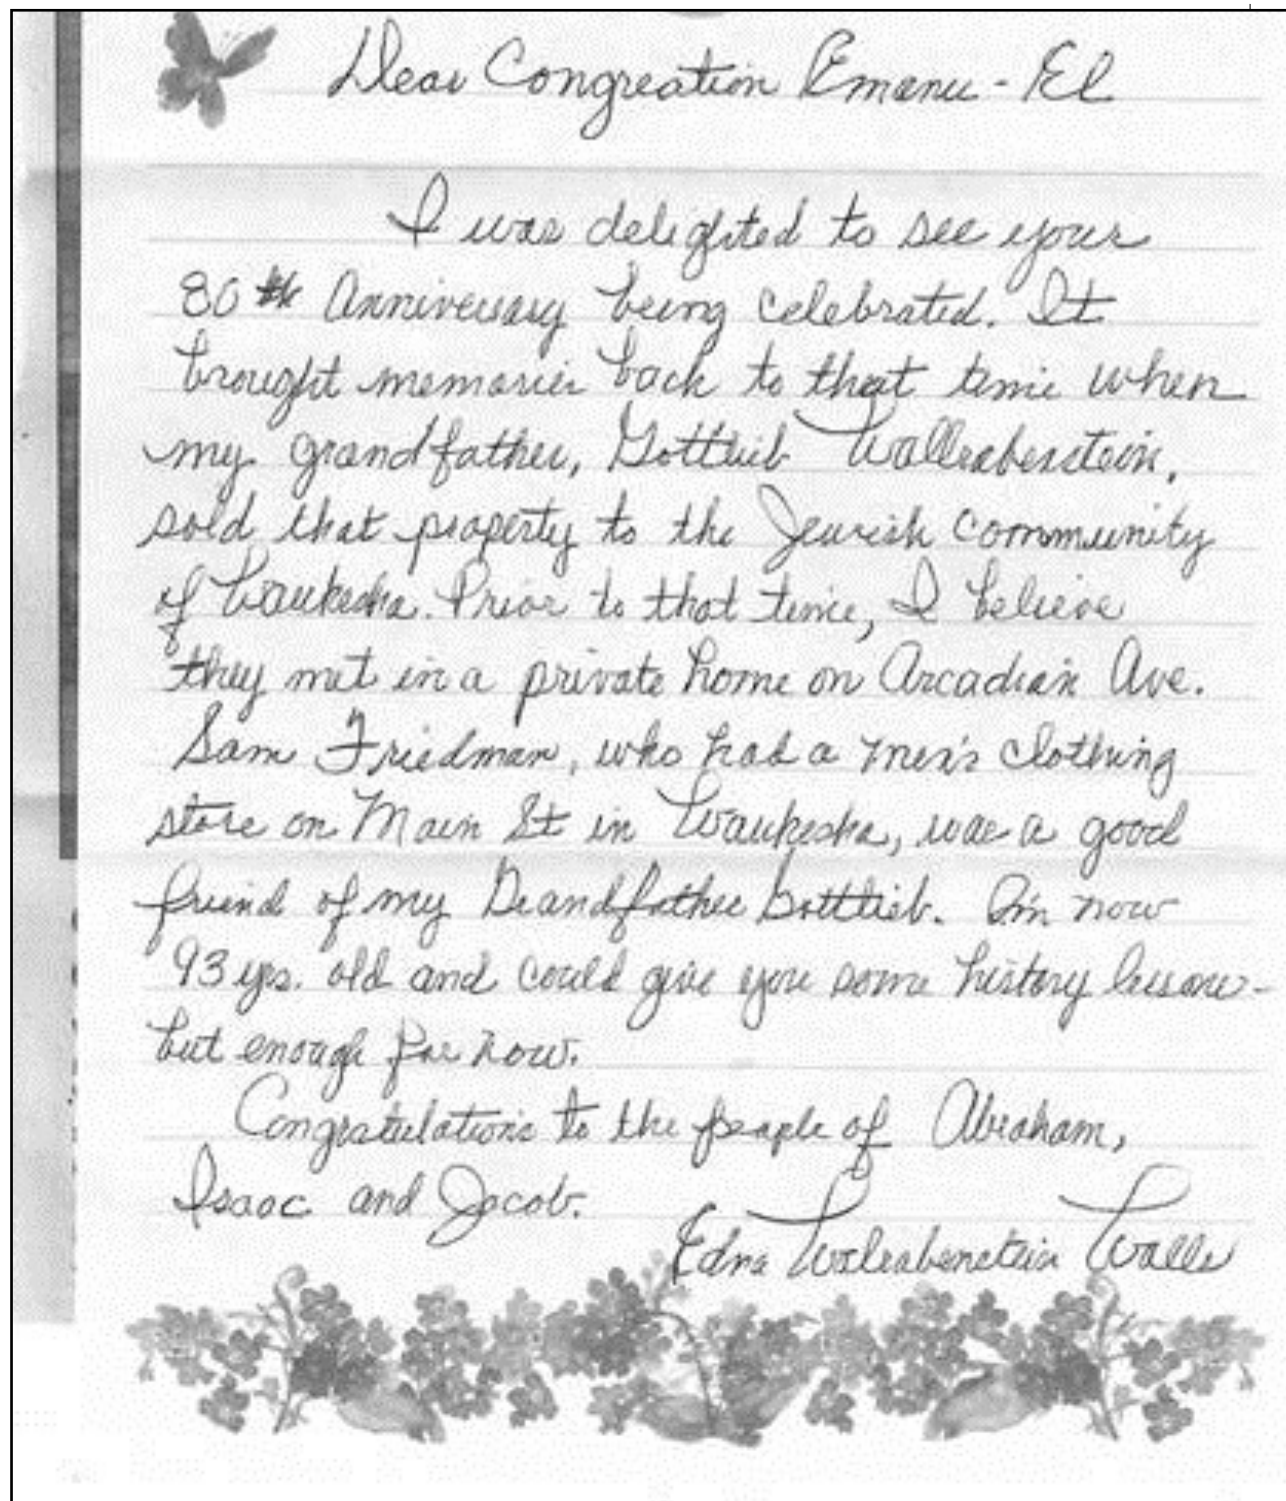 Dear Congreation Emanu-El
I was delighted to see your
80th Anniversary being celebrated. It
brought memories back to that time when
my grandfather, Gottlieb Wallrabenstein,
sold that property to the Jewish Community
of Waukesha. Prior to that time, I believe
they met in a private home on Arcadian Ave.
Sam Friedman, who had a men's clothing
store on Main St in Waukesha, was a good
friend of my Grandfather Gottlieb. I'm now
93 yrs. old and could give you some history lessons-
but enough for now.
Congratulations to the people of Abraham,
Isaac and Jacob.
Edna Walrabenstein Walls